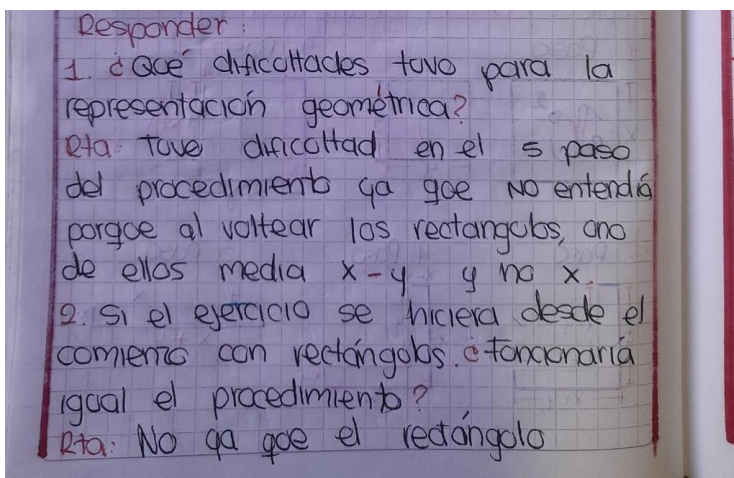 Responder:
1. ¿Qué dificultades tuvo para la
representación geométrica?
Rta: Tuve dificultad en el 5 paso
del procedimiento ya que NO entendía
porque al voltear los rectangulos, uno
de ellos media x-y y no x.
2. Si el ejercicio se hiciera desde el
comienzo con rectángulos. ¿funcionaría
igual el procedimiento?
Rta: No ya que el rectángulo